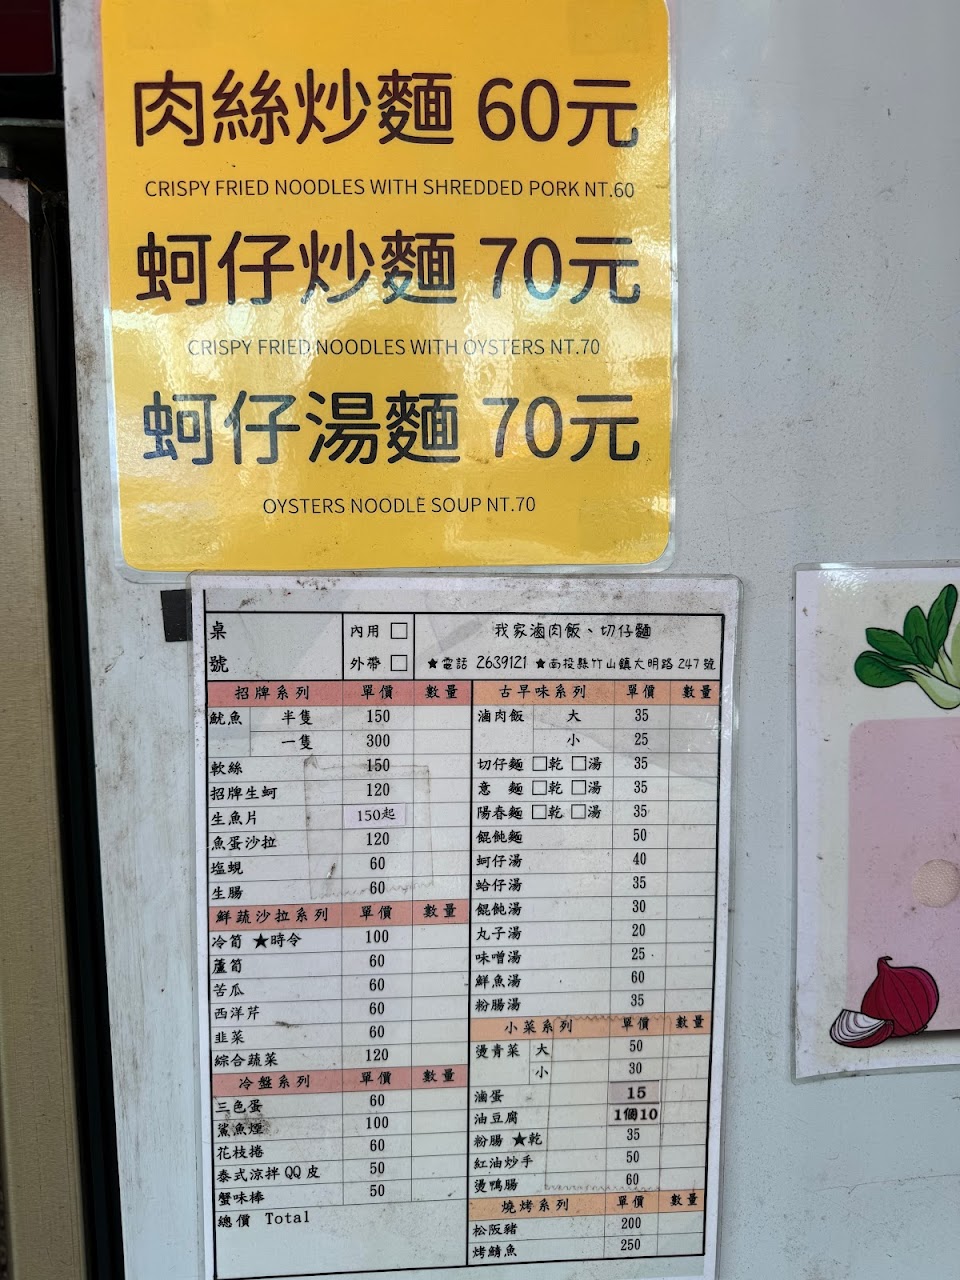 肉絲炒麵 60元
CRISPY FRIED NOODLES WITH SHREDDED PORK NT.60
蚵仔炒麵 70元
CRISPY FRIED NOODLES WITH OYSTERS NT.70
蚵仔湯麵 70元
OYSTERS NOODLE SOUP NT.70
桌號 內用 □ 外帶 □
我家滷肉飯、切仔麵
★電話 2639121 ★南投縣竹山鎮大明路 247 號
招牌系列 單價 數量
魷魚 半隻 150
一隻 300
軟絲 150
招牌生蚵 120
生魚片 150起
魚蛋沙拉 120
塩蜆 60
生腸 60
鮮蔬沙拉系列 單價 數量
冷筍 ★時令 100
蘆筍 60
苦瓜 60
西洋芹 60
韭菜 60
綜合蔬菜 120
冷盤系列 單價 數量
三色蛋 60
鯊魚煙 100
花枝捲 60
泰式涼拌 QQ 皮 50
蟹味棒 50
總價 Total
古早味系列 單價 數量
滷肉飯 大 35
小 25
切仔麵 □乾 □湯 35
意 麵 □乾 □湯 35
陽春麵 □乾 □湯 35
餛飩麵 50
蚵仔湯 40
蛤仔湯 35
餛飩湯 30
丸子湯 20
味噌湯 25
鮮魚湯 60
粉腸湯 35
小菜系列 單價 數量
燙青菜 大 50
小 30
滷蛋 15
油豆腐 1個10
粉腸 ★乾 35
紅油炒手 50
燙鴨腸 60
燒烤系列 單價 數量
松阪豬 200
烤鯖魚 250